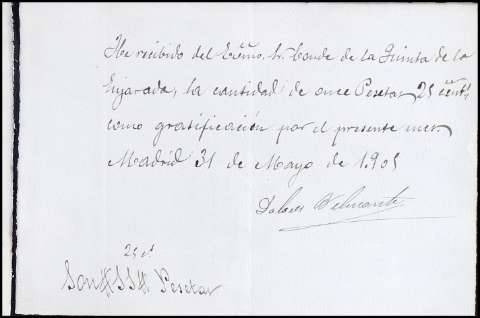 He recibido del Excmo. Sr. Conde de la Quinta de la
Enjarada, la cantidad de once Pesetas 25 cents
como gratificación por el presente mes
Madrid 31 de Mayo de 1.905
Dolores Belmonte
25 cs
Son # 11 # Pesetas